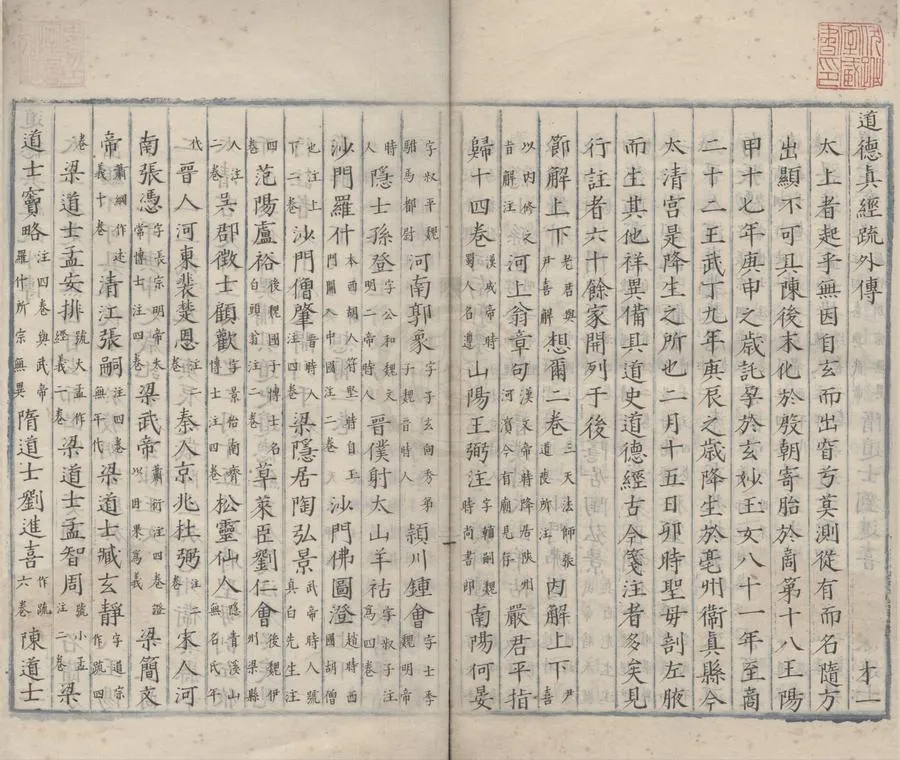 道德真經疏外傳 才一
太上者起乎無因自玄而出窅兮莫測從有而名隨方
出顯不可具陳後末化於殷朝寄胎於商第十八王陽
甲十七年庚申之歲託孕於玄妙王女八十一年至商
二十二王武丁九年庚辰之歲降生於亳州衛真縣今
太清宮是降生之所也二月十五日卯時聖毋剖左腋
而生其他祥異備具道史道德經古今箋注者多矣見
行註者六十餘家開列于後
節解上下老君與尹喜解想爾二卷三天法師張道陵所注內解上下尹喜
以內修之旨解注河上翁章句漢文帝時降居陜州河濱今有廟見存嚴君平指
歸十四卷漢成帝時蜀人名遵山陽王弼注字輔嗣魏時尚書郎南陽何晏
字叔平魏駙馬都尉河南郭象字子玄向秀弟子魏晉時人頴川鍾會字士季魏明帝
時人隱士孫登字公和魏文明二帝時人晉僕射太山羊祜字叔子注為四卷
沙門羅什本西胡人符堅時自玉門關入中國注二卷沙門佛圖澄趙時西國胡僧
也注上下二卷沙門僧肇晉時人注四卷梁隱居陶弘景武帝時人號真白先生注
四卷范陽盧裕後魏國子博士名白頭翁注二卷草萊臣劉仁會後魏伊州梁縣
人注二卷吳郡徵士顧歡字景怡南齊博士注四卷松靈仙人隱青溪山無名氏年
代晉人河東裴楚恩注二卷秦人京兆杜弼注二卷宋人河
南張憑字長宗明帝太常博士注四卷梁武帝蕭衍注四卷證以因果為義梁簡文
帝蕭綱作道德義十卷清江張嗣注四卷無年代梁道士臧玄靜字道宗作疏四
卷梁道士孟安排號大孟作經義二卷梁道士孟智周號小孟注卷梁
道士竇略注四卷與武帝羅什所宗無異隋道士劉進喜作疏六卷陳道士